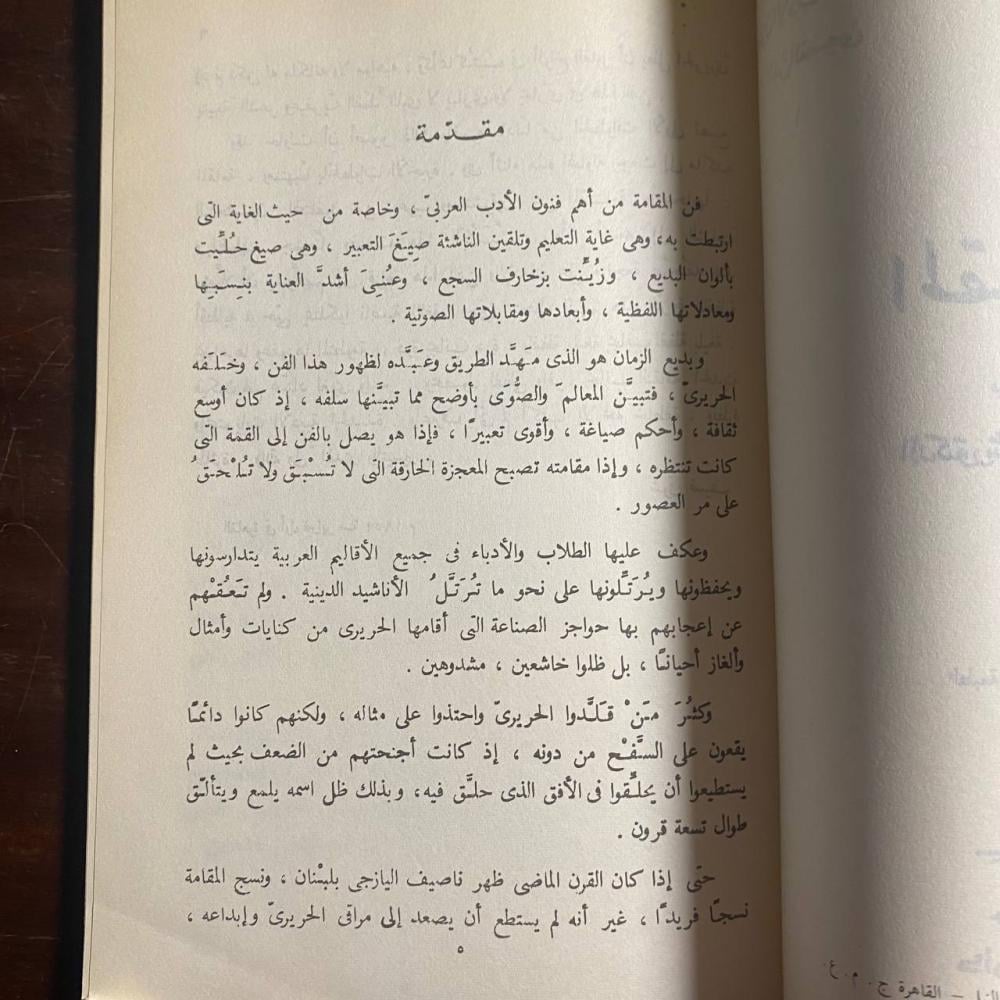 مقدّمة
فن المقامة من أهم فنون الأدب العربىّ ، وخاصة من حيث الغاية التى
ارتبطت به، وهى غاية التعليم وتلقين الناشئة صِيَغَ التعبير ، وهى صيغ حُلِّيت
بألوان البديع ، وزُيِّنت بزخارف السجع ، وعُنىَ أشدَّ العناية بنِسَبِها
ومعادلاتها اللفظية ، وأبعادها ومقابلاتها الصوتية .
وبديع الزمان هو الذى مَهَّد الطريق وعَبَّده لظهور هذا الفن ، وخَلَفه
الحريرىّ ، فتبيَّن المعالمَ والصُّوَى بأوضح مما تبيَّنها سلفه ، إذ كان أوسع
ثقافة ، وأحكم صياغة ، وأقوى تعبيرًا ، فإذا هو يصل بالفن إلى القمة التى
كانت تنتظره ، وإذا مقامته تصبح المعجزة الخارقة التى لا تُسْبَق ولا تُلْحَقُ
على مر العصور .
وعكف عليها الطلاب والأدباء فى جميع الأقاليم العربية يتدارسونها
ويحفظونها ويُرَتِّلونها على نحو ما تُرَتَّلُ الأناشيد الدينية . ولم تَعُقْهم
عن إعجابهم بها حواجز الصناعة التى أقامها الحريرى من كنايات وأمثال
وألغاز أحيانًا ، بل ظلوا خاشعين ، مشدوهين .
وكثُرَ مَنْ قَلَّدوا الحريرىّ واحتذوا على مثاله ، ولكنهم كانوا دائمًا
يقعون على السَّفْح من دونه ، إذ كانت أجنحتهم من الضعف بحيث لم
يستطيعوا أن يحلِّقوا فى الأفق الذى حلَّق فيه، وبذلك ظل اسمه يلمع ويتألّق
طوال تسعة قرون .
حتى إذا كان القرن الماضى ظهر ناصيف اليازجى بلبْنان ، ونسج المقامة
نسجًا فريدًا ، غير أنه لم يستطع أن يصعد إلى مراقى الحريرىّ وإبداعه ،
٥
القاهرة ج . م . ع .